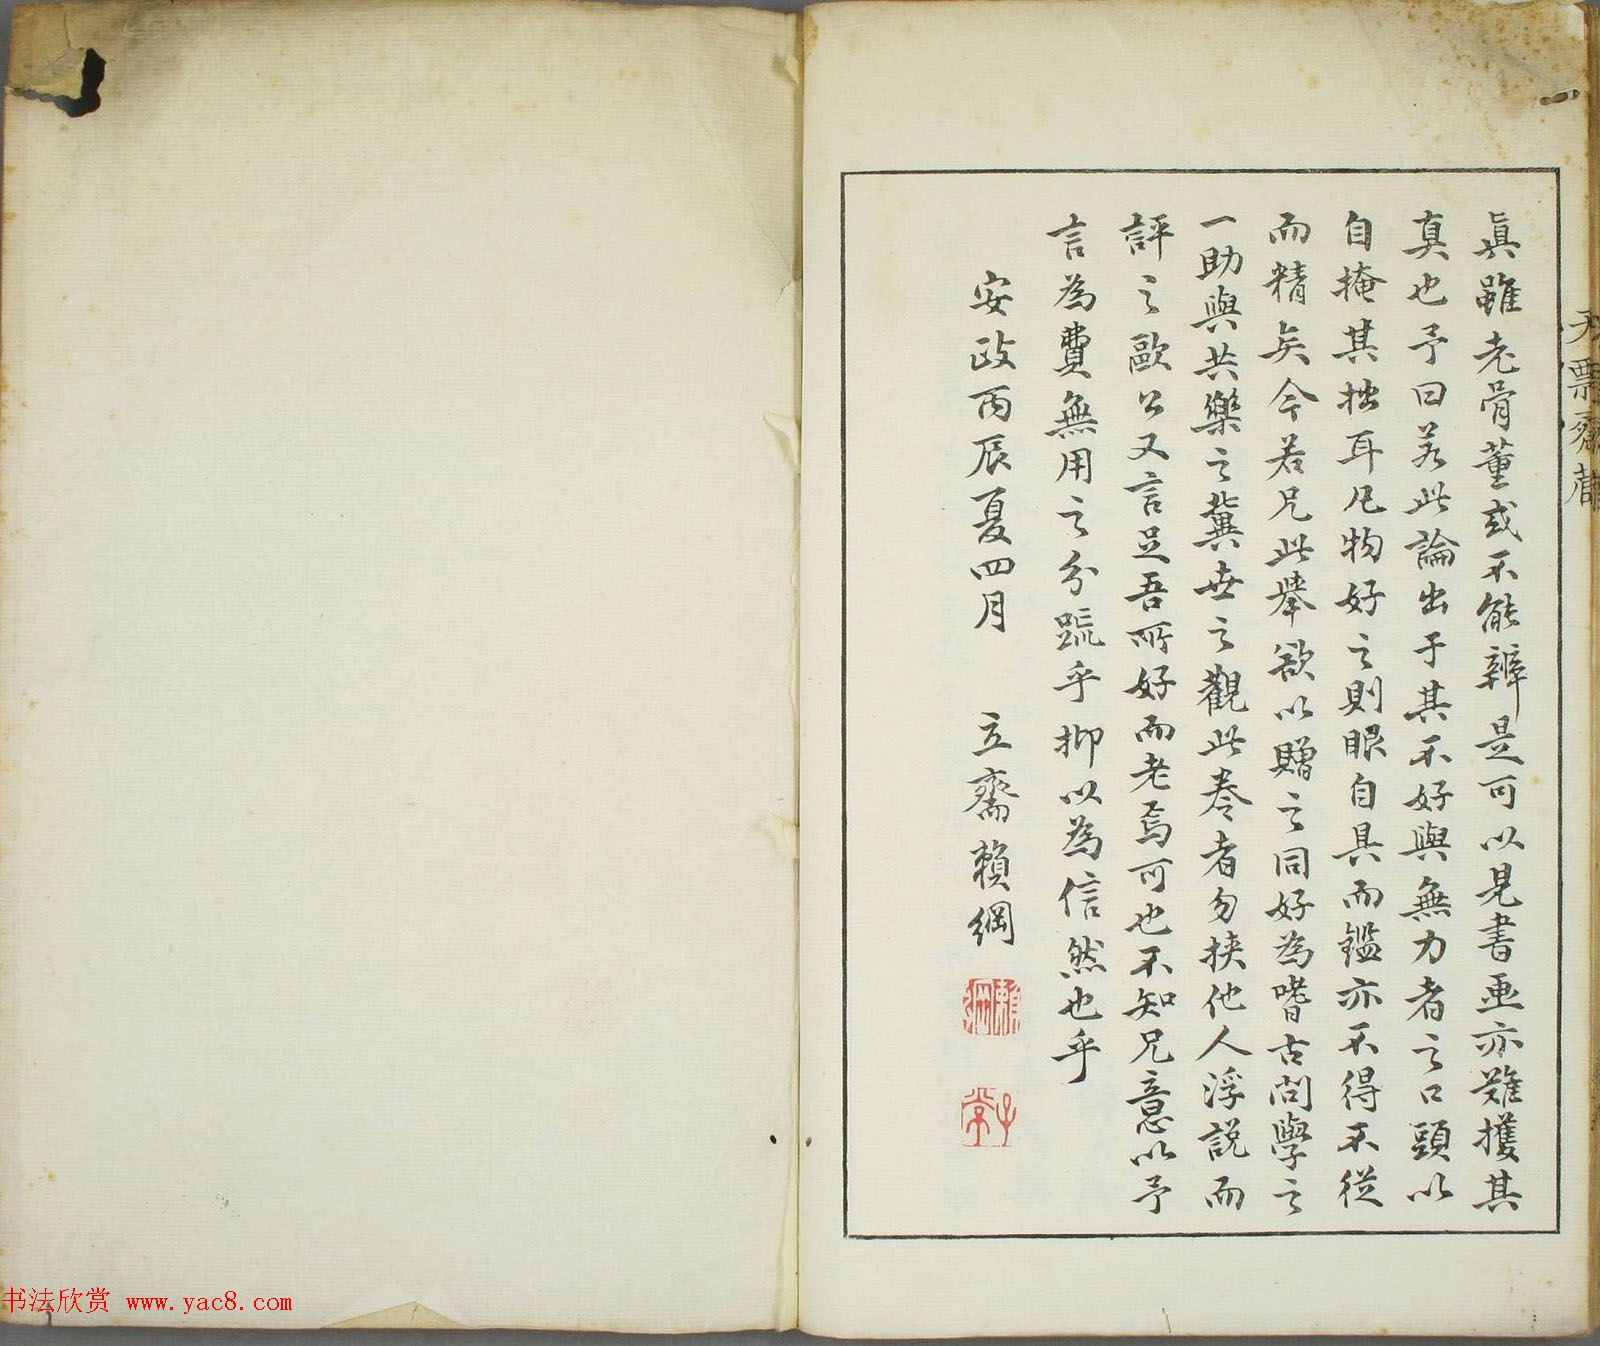 眞雖老骨董或不能辨是可以見書画亦難獲其
真也予曰若此論出于其不好與無力者之口頭以
自掩其拙耳凡物好之則眼自具而鑑亦不得不從
而精矣今若兄此舉欲以贈之同好為嗜古問學之
一助與共樂之冀世之觀此卷者勿挟他人浮説而
評之歐公又言足吾所好而老焉可也不知兄意以予
言為費無用之分疏乎抑以為信然也乎
安政丙辰夏四月 立齋賴綱
书法欣赏 www.yac8.com